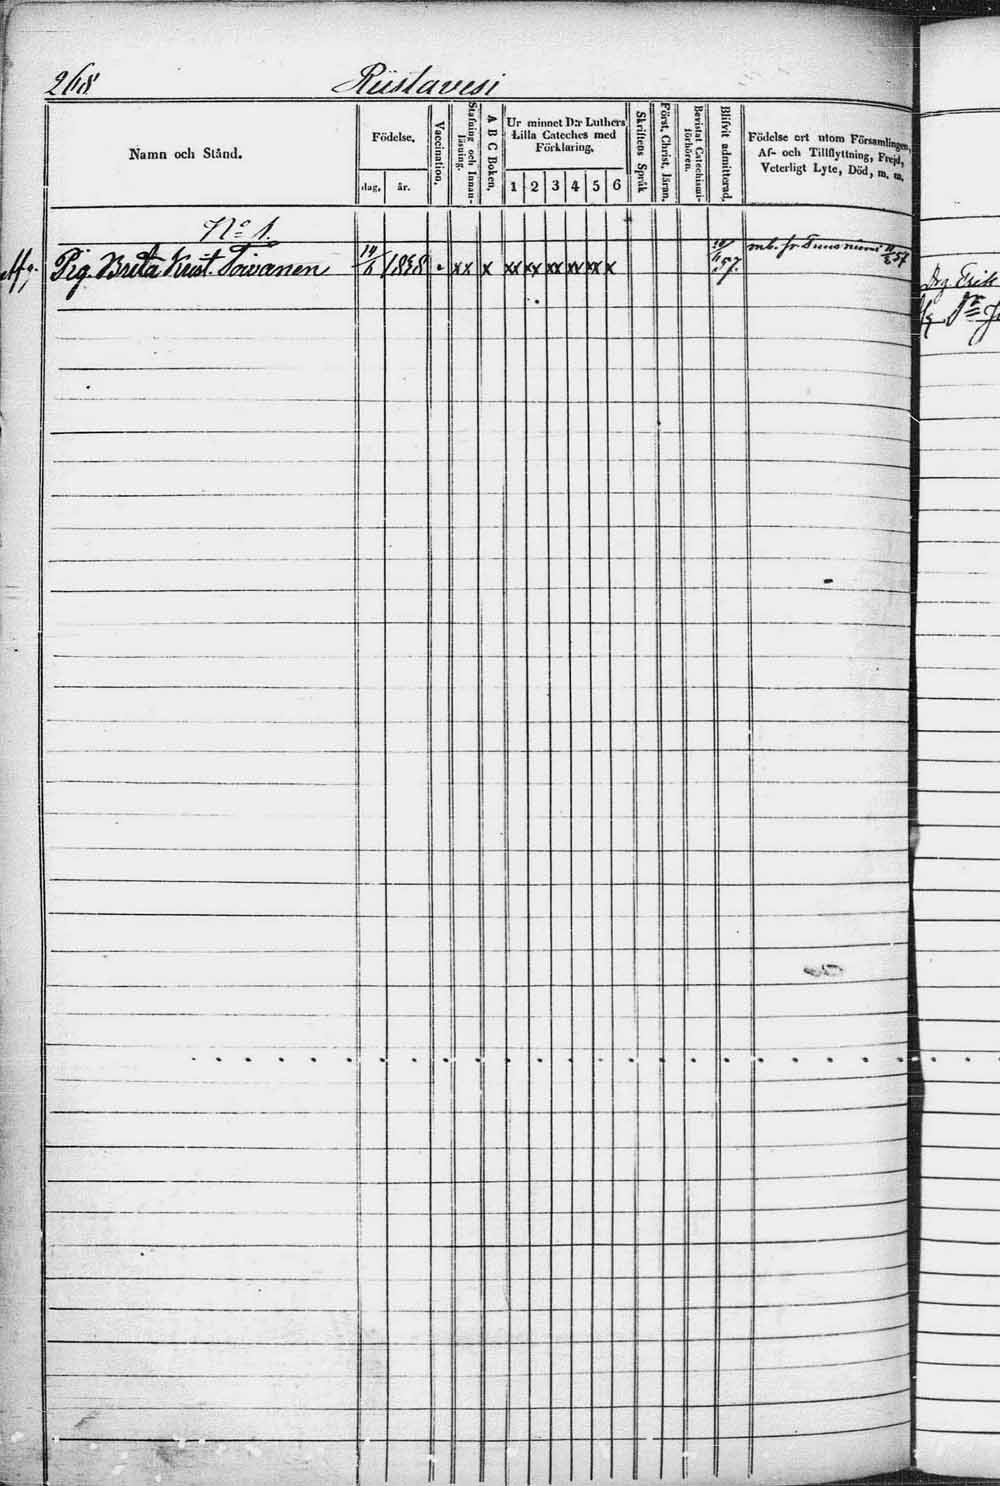 268 Riistavesi
Namn och Stånd.
Födelse.
dag. år.
Vaccination.
Stafning och Innan-
läsning.
A B C Boken.
Ur minnet D:r Luthers
Lilla Cateches med
Förklaring.
1 2 3 4 5 6
Skriftens Språk
Först. Christ. läran.
Bevistat Catechismi-
förhören.
Blifvit admitterad.
Födelse ort utom Församlingen,
Af- och Tillflyttning, Frejd,
Veterligt Lyte, Död, m. m.
No 1.
Pig. Brita Krist. Toivanen 1838 xx x xx xx xx xx xx x 57. mb. fr. 57
Drg Erik